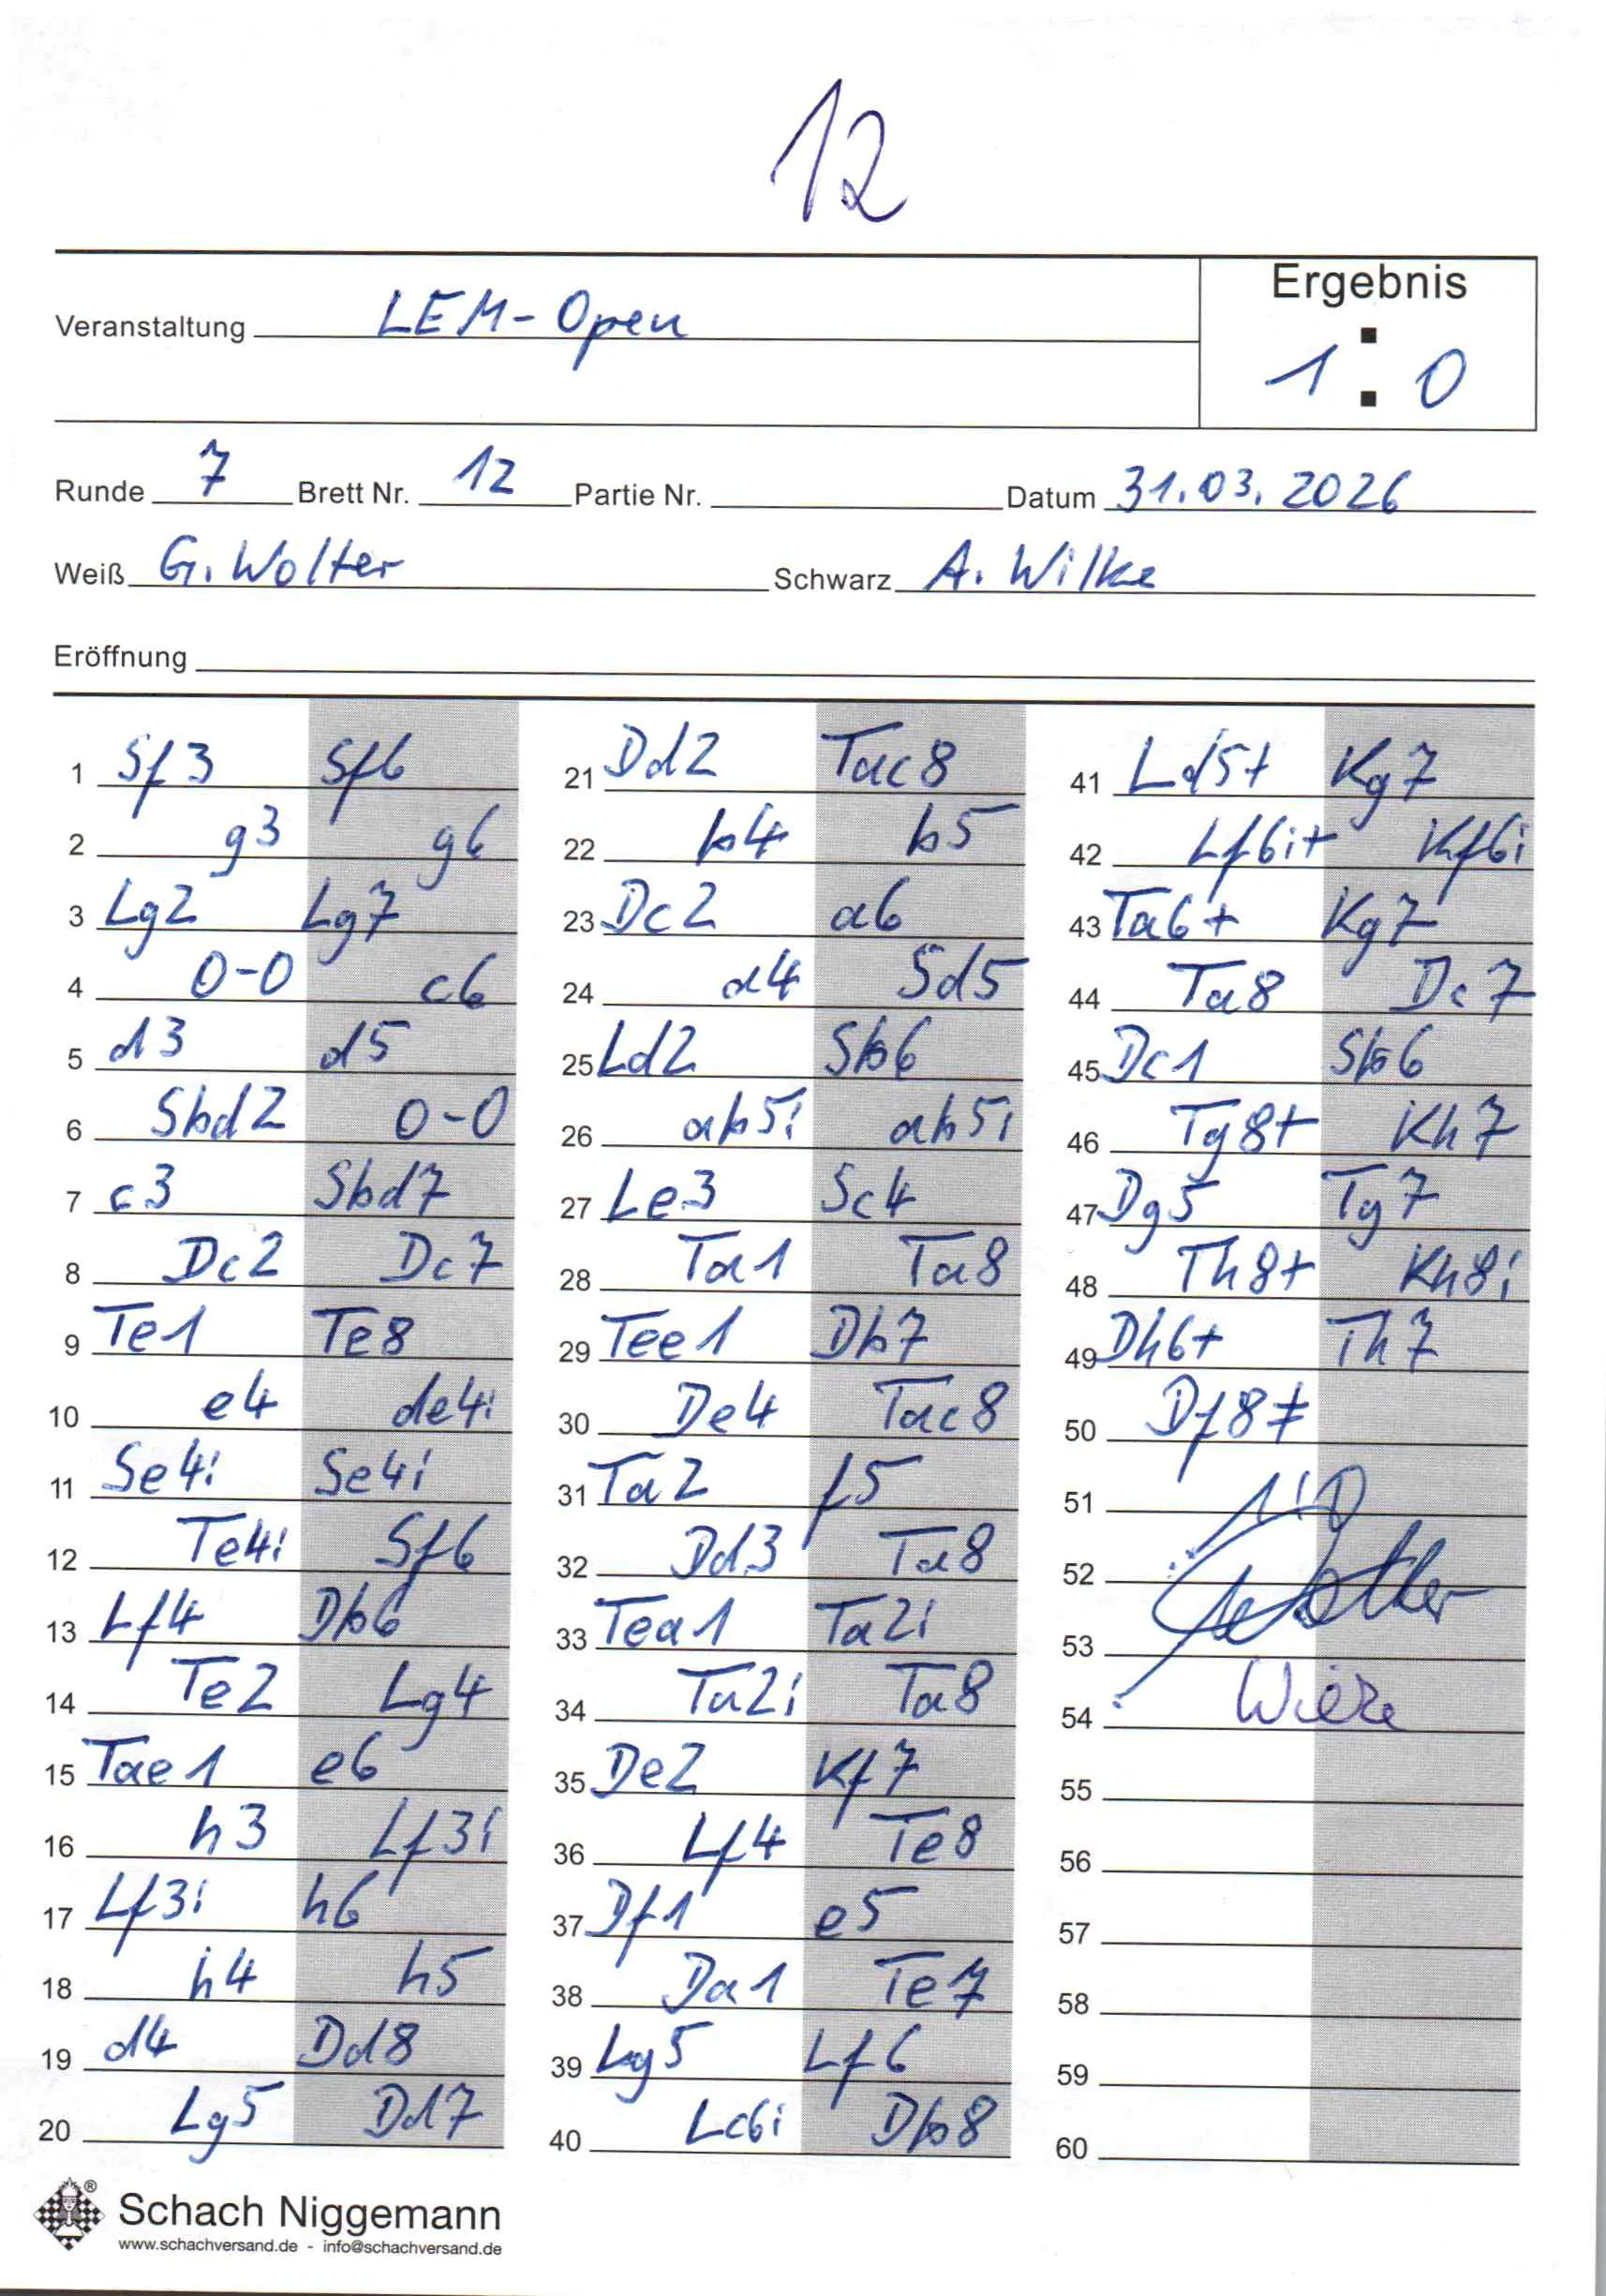 12
Ergebnis
Veranstaltung LEM-Open
1 : 0
Runde 7 Brett Nr. 12 Partie Nr. Datum 31.03.2026
Weiß G. Wolter Schwarz A. Wilke
Eröffnung
1 Sf3 Sf6
2 g3 g6
3 Lg2 Lg7
4 0-0 c6
5 d3 d5
6 Sbd2 0-0
7 c3 Sbd7
8 Dc2 Dc7
9 Te1 Te8
10 e4 de4i
11 Se4i Se4i
12 Te4i Sf6
13 Lf4 Db6
14 Te2 Lg4
15 Tae1 e6
16 h3 Lf3i
17 Lf3i h6
18 h4 h5
19 d4 Dd8
20 Lg5 Dd7
21 Dd2 Tac8
22 b4 b5
23 Dc2 a6
24 a4 Sd5
25 Ld2 Sb6
26 ab5i ab5i
27 Le3 Sc4
28 Ta1 Ta8
29 Tee1 Db7
30 De4 Tac8
31 Ta2 f5
32 Dd3 Ta8
33 Tea1 Ta2i
34 Ta2i Ta8
35 De2 Kf7
36 Lf4 Te8
37 Df1 e5
38 Da1 Te7
39 Lg5 Lf6
40 Lc6i Db8
41 Ld5+ Kg7
42 Lf6i+ Kf6i
43 Ta6+ Kg7
44 Ta8 Dc7
45 Dc1 Sb6
46 Tg8+ Kh7
47 Dg5 Tg7
48 Th8+ Kh8i
49 Dh6+ Th7
50 Df8≠
51 1:0
52 Wolter
53
54 Wilke
55
56
57
58
59
60
®
Schach Niggemann
www.schachversand.de - info@schachversand.de